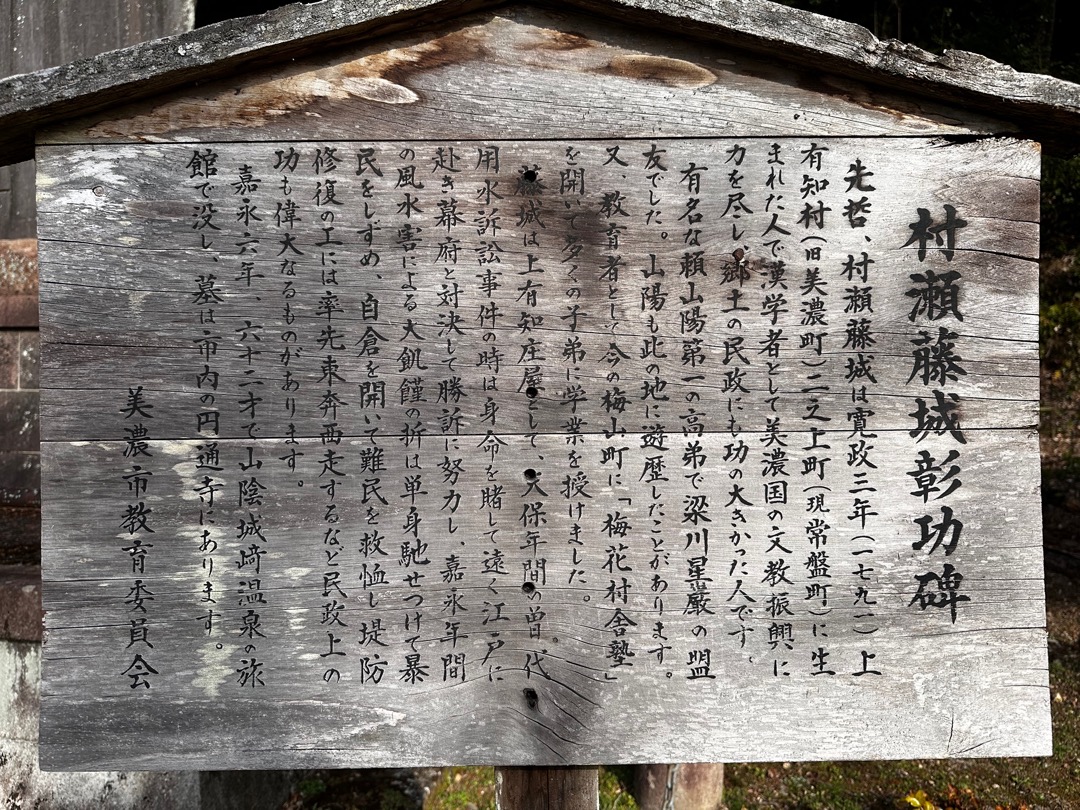 村瀬藤城彰功碑
先哲、村瀬藤城は寛政三年（一七九一）上
有知村（旧美濃町）二之上町（現常盤町）に生
まれた人で漢学者として美濃国の文教振興に
力を尽し、郷土の民政にも功の大きかった人です。
有名な頼山陽第一の高弟で梁川星巌の盟
友でした。山陽も此の地に遊歴したことがあります。
又、教育者として今の梅山町に「梅花村舎塾」
を開いて多くの子弟に学業を授けました。
藤城は上有知庄屋として、天保年間の曽代
用水訴訟事件の時は身命を賭して遠く江戸に
赴き幕府と対決して勝訴に努力し、嘉永年間
の風水害による大飢饉の折は単身馳せつけて暴
民をしずめ、自倉を開いて難民を救恤し堤防
修復の工には率先東奔西走するなど民政上の
功も偉大なるものがあります。
嘉永六年、六十二才で山陰城崎温泉の旅
館で没し、墓は市内の円通寺にあります。
美濃市教育委員会